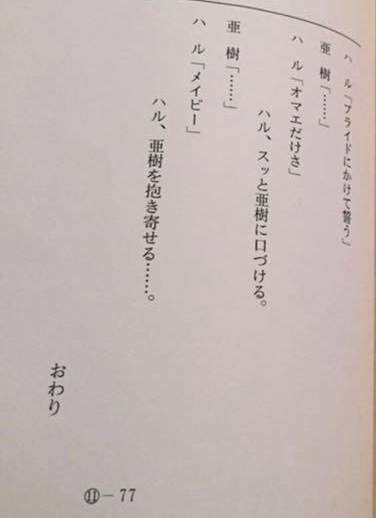 ハル「プライドにかけて誓う」
亜樹「……」
ハル「オマエだけさ」
ハル、スッと亜樹に口づける。
亜樹「……」
ハル「メイビー」
ハル、亜樹を抱き寄せる……。
おわり
⑪－77